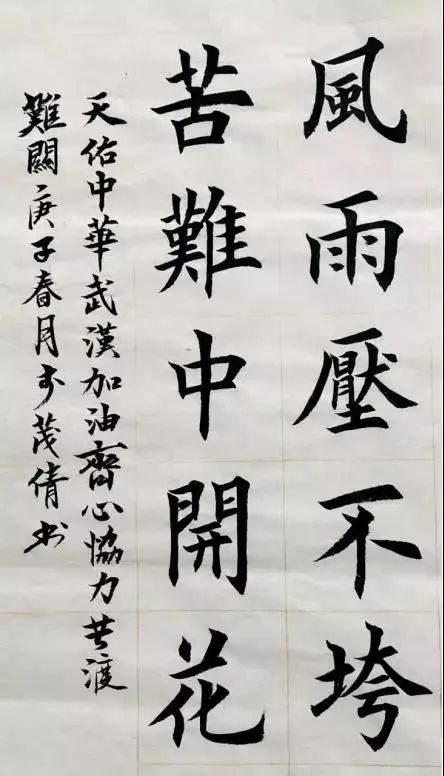 風雨壓不垮
苦難中開花
天佑中華武漢加油齊心協力共渡
難關庚子春月于茂倩书